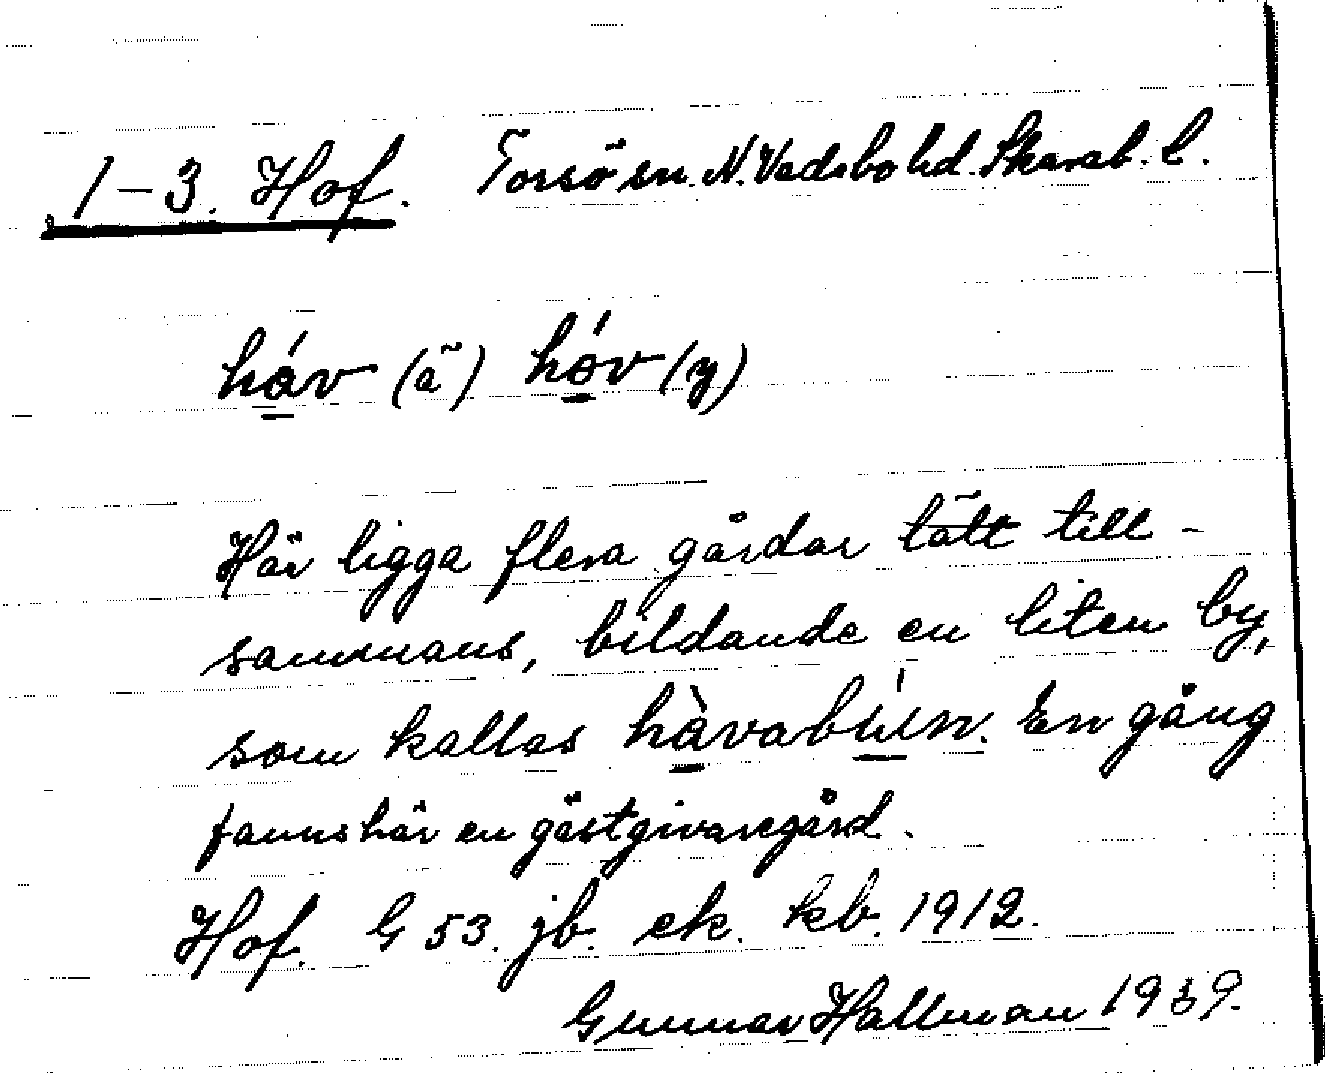 1-3. Hof. Torsö sn. N. Vadsbo hd. Skarab. l.
håv (ä) hóv (y)
Här ligga flera gårdar tätt till-
sammans, bildande en liten by,
som kallas hàvabýin. En gång
fanns här en gästgivaregård.
Hof. G 53. jb. ek. kb. 1912.
Gunnar Hallman 1939.